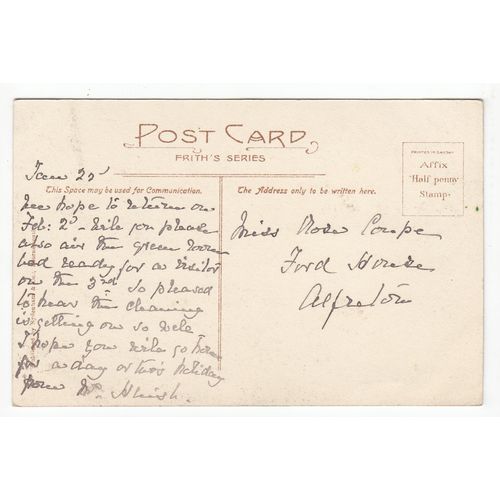 POST CARD
FRITH'S SERIES
PRINTED IN SAXONY
Affix
Half penny
Stamp.
This Space may be used for Communication.
The Address only to be written here.
Jan 22d
We hope to return on
Feb: 2d - Will you please
also air the green room
bed ready for a visitor
on the 3rd so pleased
to hear the cleaning
is getting on so well
I hope you will go home
for a day or two's holiday
from Mrs.
Miss Rose Coupe
Ford House
Alfreton